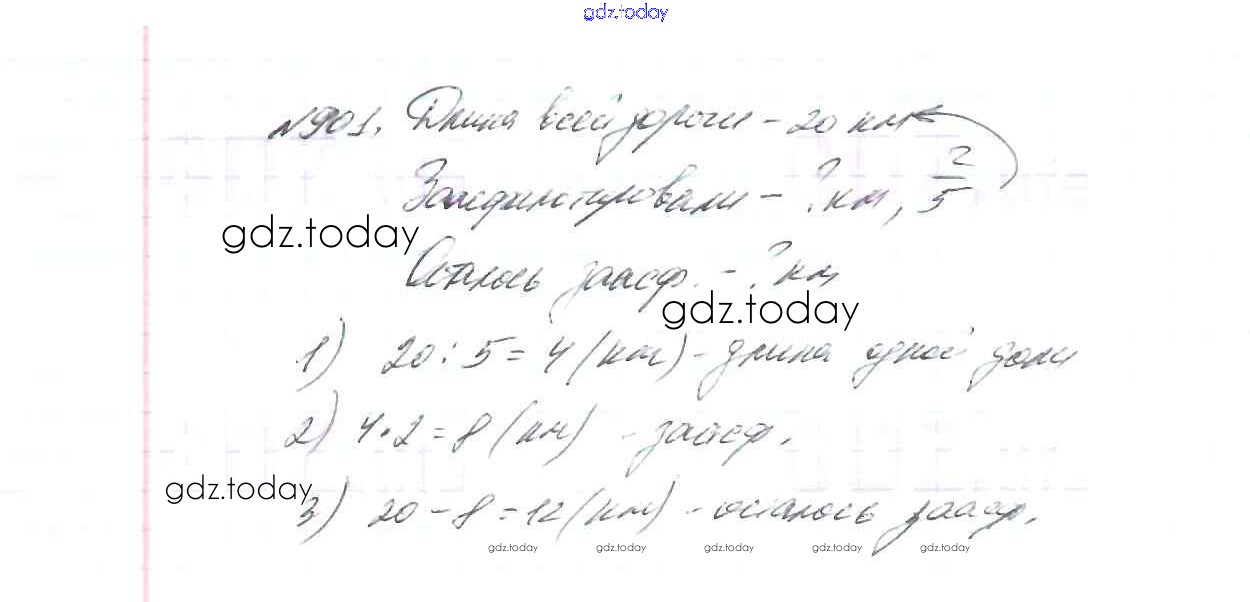 gdz.today
№901. Длина всей дороги - 20 км
Заасфальтировали - ? км, 2/5
gdz.today
Осталось заасф. - ? км
gdz.today
1) 20 : 5 = 4 (км) - длина одной доли
2) 4 · 2 = 8 (км) - заасф.
gdz.today
3) 20 - 8 = 12 (км) - осталось заасф.
gdz.today gdz.today gdz.today gdz.today gdz.today